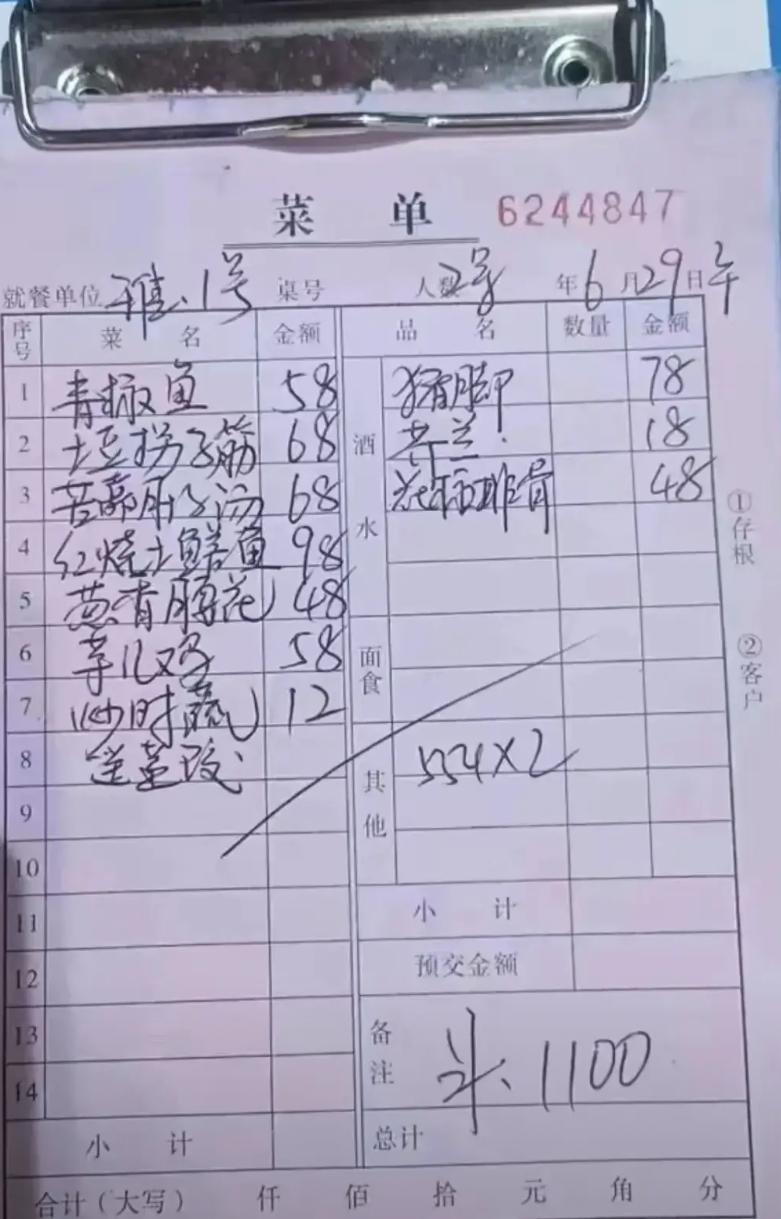 菜 单 6244847
就餐单位 雅.1号 桌号 人数 2号 年6月29日午
序号 菜 名 金额 品 名 数量 金额
1 青椒鱼 58 酒水 猪脚 78
2 土豆拐子筋 68 芥兰 18
3 苦藠肘子汤 68 排骨 48
4 红烧土鳝鱼 98
5 葱香腰花 48
6 芋儿鸡 58 面食
7 炒时蔬 12
8 其他 554X2
9
10
11 小 计
12 预交金额
13 备注 斗. 1100
14
小 计 总计
合计(大写) 仟 佰 拾 元 角 分
①仔根
②客户